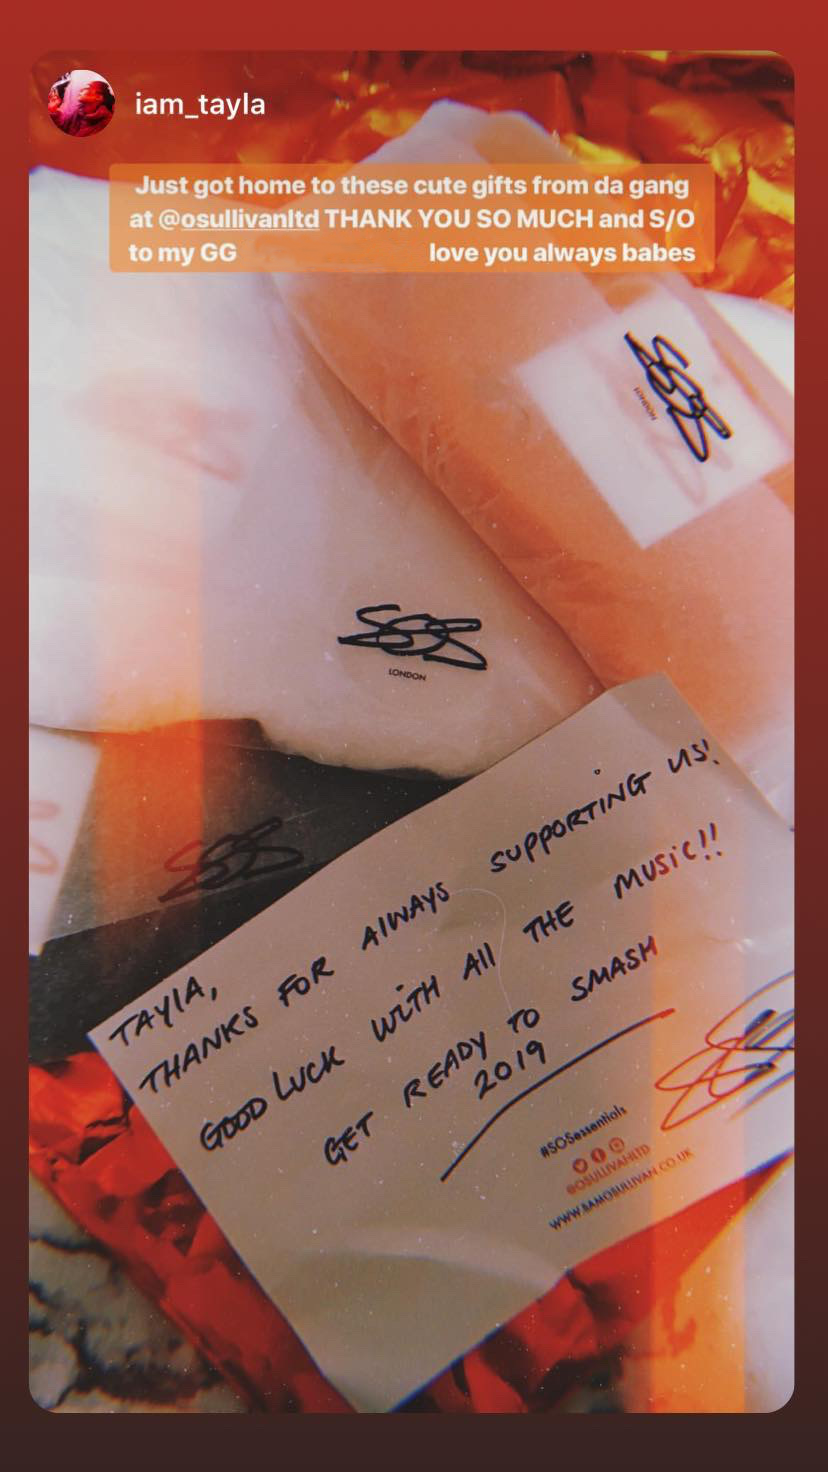 iam_tayla
Just got home to these cute gifts from da gang
at @osullivanltd THANK YOU SO MUCH and S/O
to my GG love you always babes
SOS
LONDON
SOS
LONDON
SOS
TAYLA,
THANKS FOR ALWAYS SUPPORTING US!
GOOD LUCK WITH ALL THE MUSIC!!
GET READY TO SMASH
2019
#SOSessentials
@OSULLIVANLTD
WWW.SAMOSULLIVAN.CO.UK